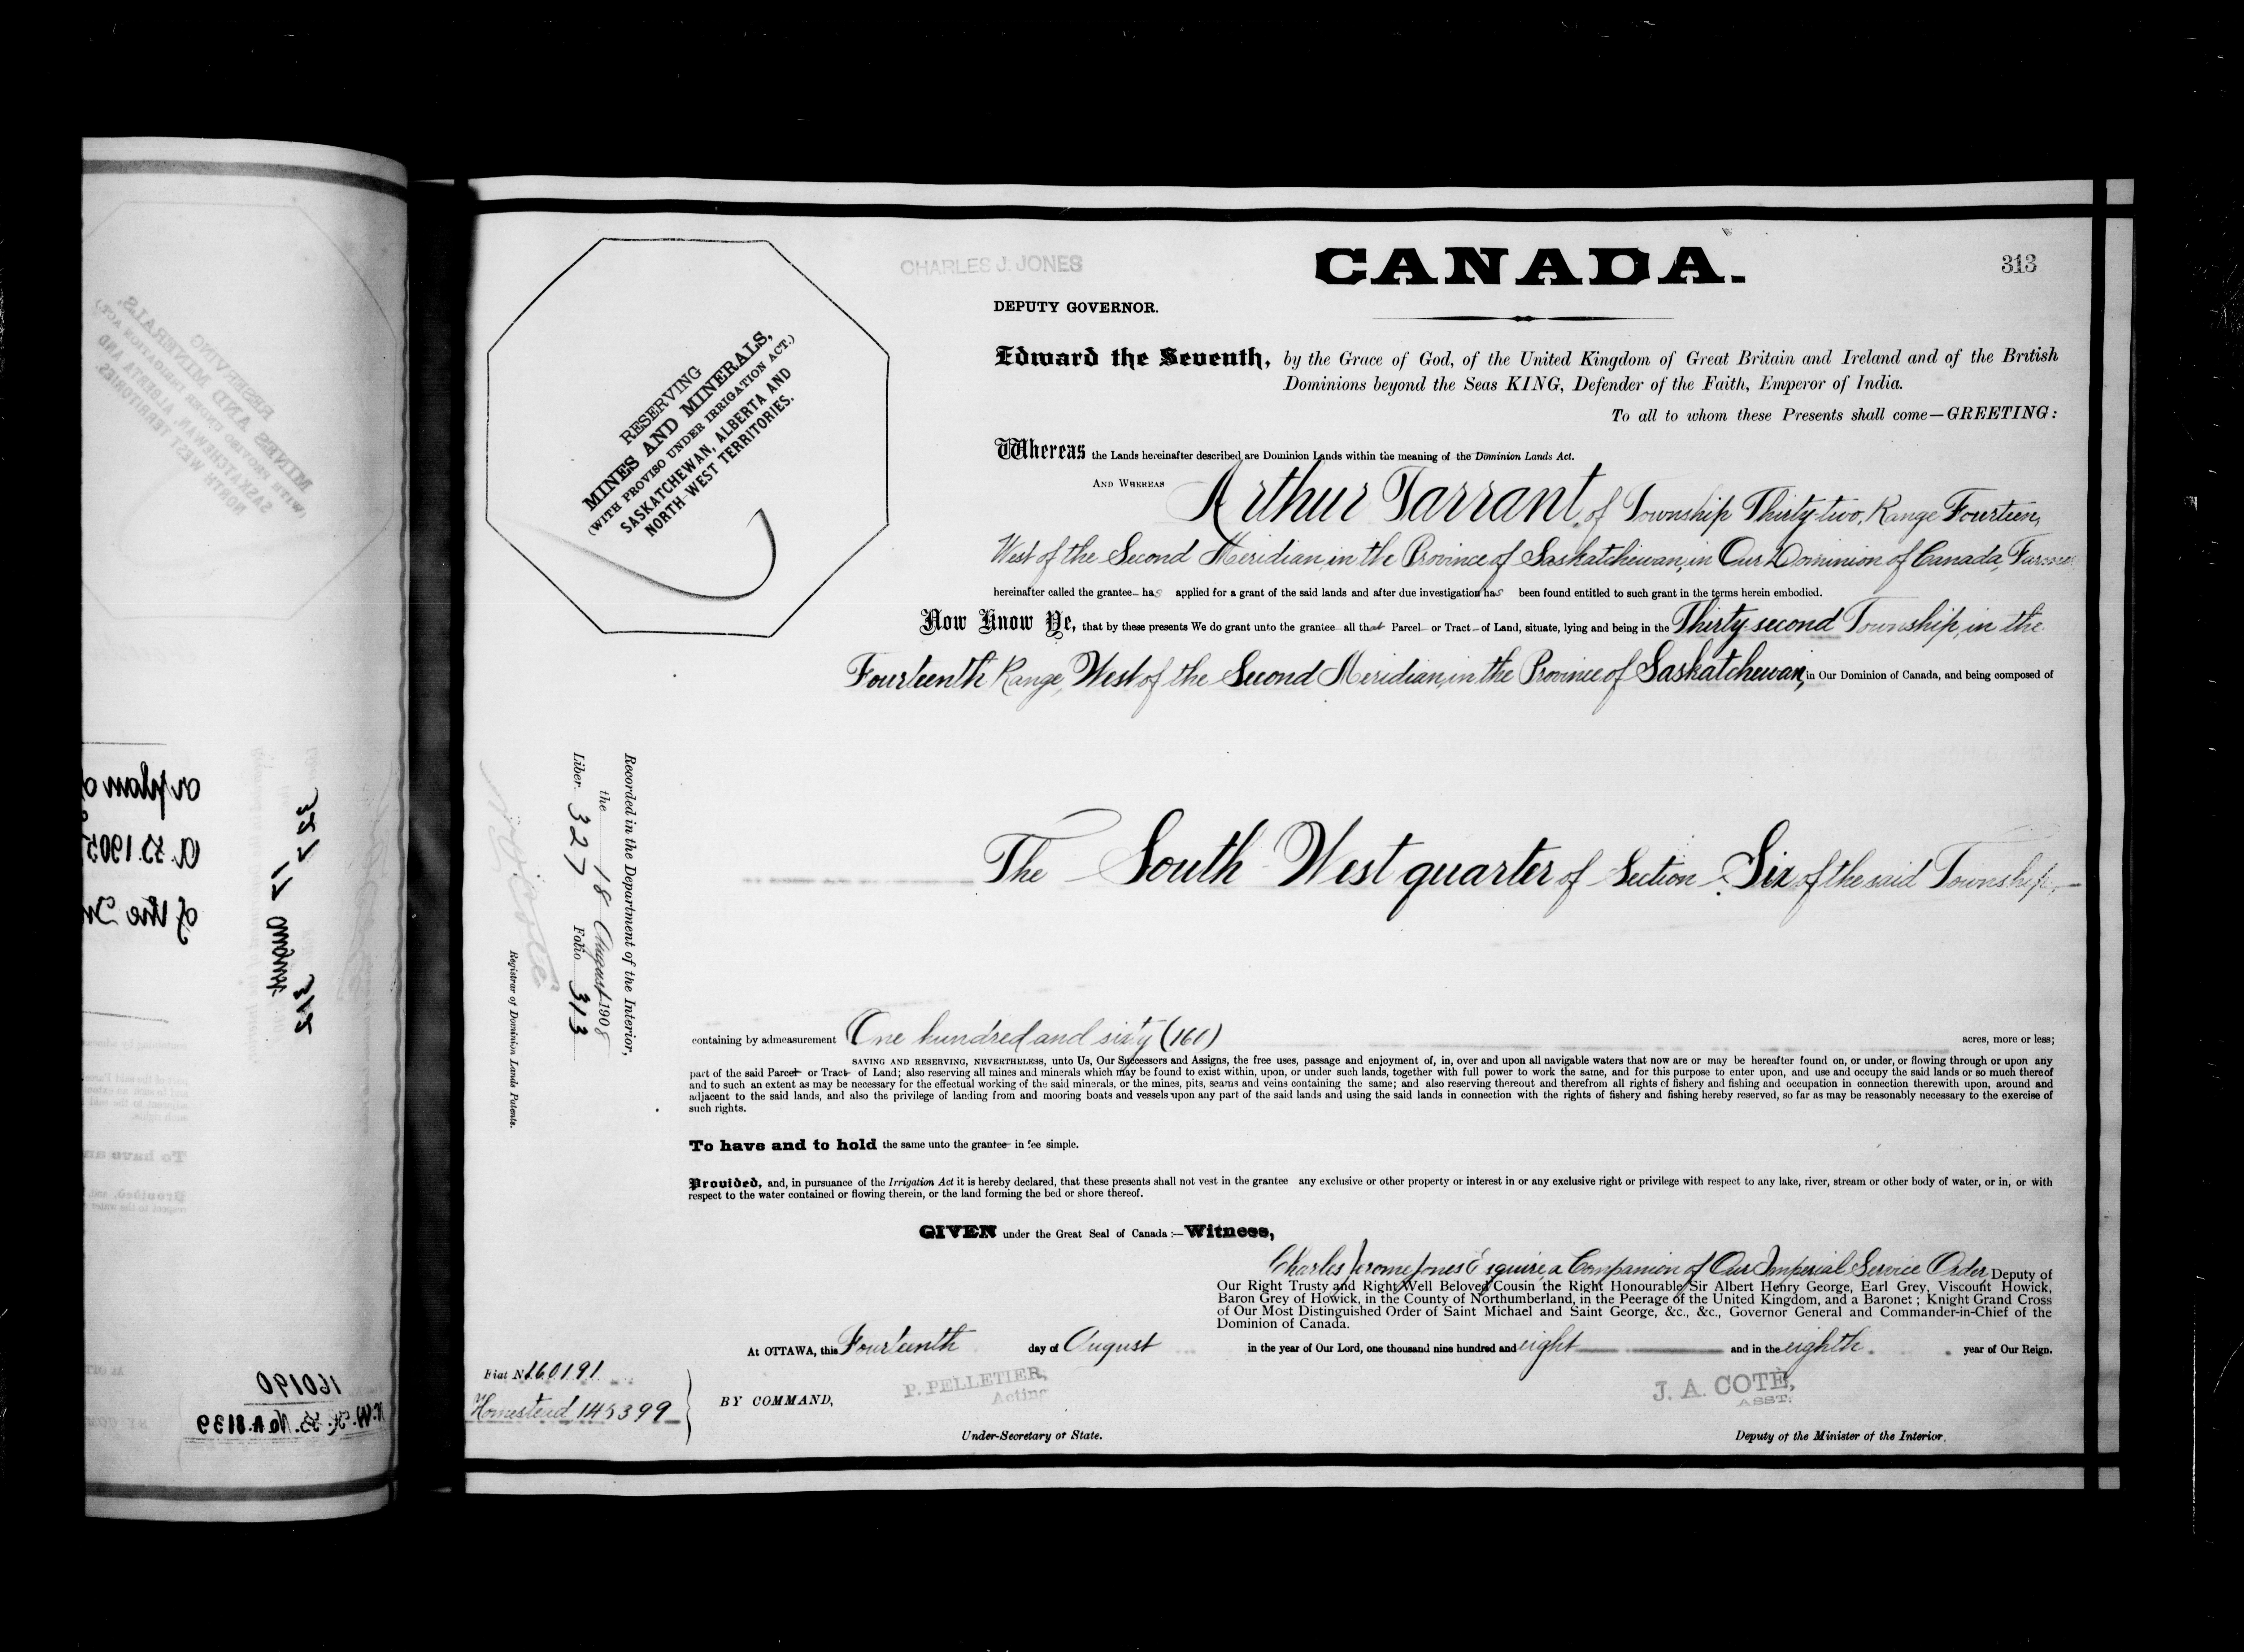 CHARLES J. JONES
CANADA.
313
DEPUTY GOVERNOR.
RESERVING
MINES AND MINERALS,
(WITH PROVISO UNDER IRRIGATION ACT.)
SASKATCHEWAN, ALBERTA AND
NORTH-WEST TERRITORIES.
Edward the Seventh, by the Grace of God, of the United Kingdom of Great Britain and Ireland and of the British
Dominions beyond the Seas KING, Defender of the Faith, Emperor of India.
To all to whom these Presents shall come—GREETING:
Whereas the Lands hereinafter described are Dominion Lands within the meaning of the Dominion Lands Act.
AND WHEREAS Arthur Tarrant, of Township Thirty-two, Range Fourteen,
West of the Second Meridian, in the Province of Saskatchewan, in Our Dominion of Canada, Farmer
hereinafter called the grantee has applied for a grant of the said lands and after due investigation has been found entitled to such grant in the terms herein embodied.
Now Know Ye, that by these presents We do grant unto the grantee all that Parcel or Tract of Land, situate, lying and being in the Thirty-second Township, in the
Fourteenth Range, West of the Second Meridian, in the Province of Saskatchewan, in Our Dominion of Canada, and being composed of
The South West quarter of Section Six of the said Township,
Recorded in the Department of the Interior,
the 18 August 1908
Liber 327 Folio 313
Registrar of Dominion Lands Patents.
containing by admeasurement One hundred and sixty (160) acres, more or less;
SAVING AND RESERVING, NEVERTHELESS, unto Us, Our Successors and Assigns, the free uses, passage and enjoyment of, in, over and upon all navigable waters that now are or may be hereafter found on, or under, or flowing through or upon any
part of the said Parcel or Tract of Land; also reserving all mines and minerals which may be found to exist within, upon, or under such lands, together with full power to work the same, and for this purpose to enter upon, and use and occupy the said lands or so much thereof
and to such an extent as may be necessary for the effectual working of the said minerals, or the mines, pits, seams and veins containing the same; and also reserving thereout and therefrom all rights of fishery and fishing and occupation in connection therewith upon, around and
adjacent to the said lands, and also the privilege of landing from and mooring boats and vessels upon any part of the said lands and using the said lands in connection with the rights of fishery and fishing hereby reserved, so far as may be reasonably necessary to the exercise of
such rights.
To have and to hold the same unto the grantee in fee simple.
Provided, and, in pursuance of the Irrigation Act it is hereby declared, that these presents shall not vest in the grantee any exclusive or other property or interest in or any exclusive right or privilege with respect to any lake, river, stream or other body of water, or in, or with
respect to the water contained or flowing therein, or the land forming the bed or shore thereof.
GIVEN under the Great Seal of Canada:—Witness,
Charles Jerome Jones Esquire, a Companion of Our Imperial Service Order, Deputy of
Our Right Trusty and Right Well Beloved Cousin the Right Honourable Sir Albert Henry George, Earl Grey, Viscount Howick,
Baron Grey of Howick, in the County of Northumberland, in the Peerage of the United Kingdom, and a Baronet; Knight Grand Cross
of Our Most Distinguished Order of Saint Michael and Saint George, &c., &c., Governor General and Commander-in-Chief of the
Dominion of Canada.
At OTTAWA, this Fourteenth day of August in the year of Our Lord, one thousand nine hundred and eight and in the eighth year of Our Reign.
Fiat No 160191
Homestead 145399
BY COMMAND,
P. PELLETIER,
Acting
Under-Secretary of State.
J. A. COTE,
ASST.
Deputy of the Minister of the Interior.